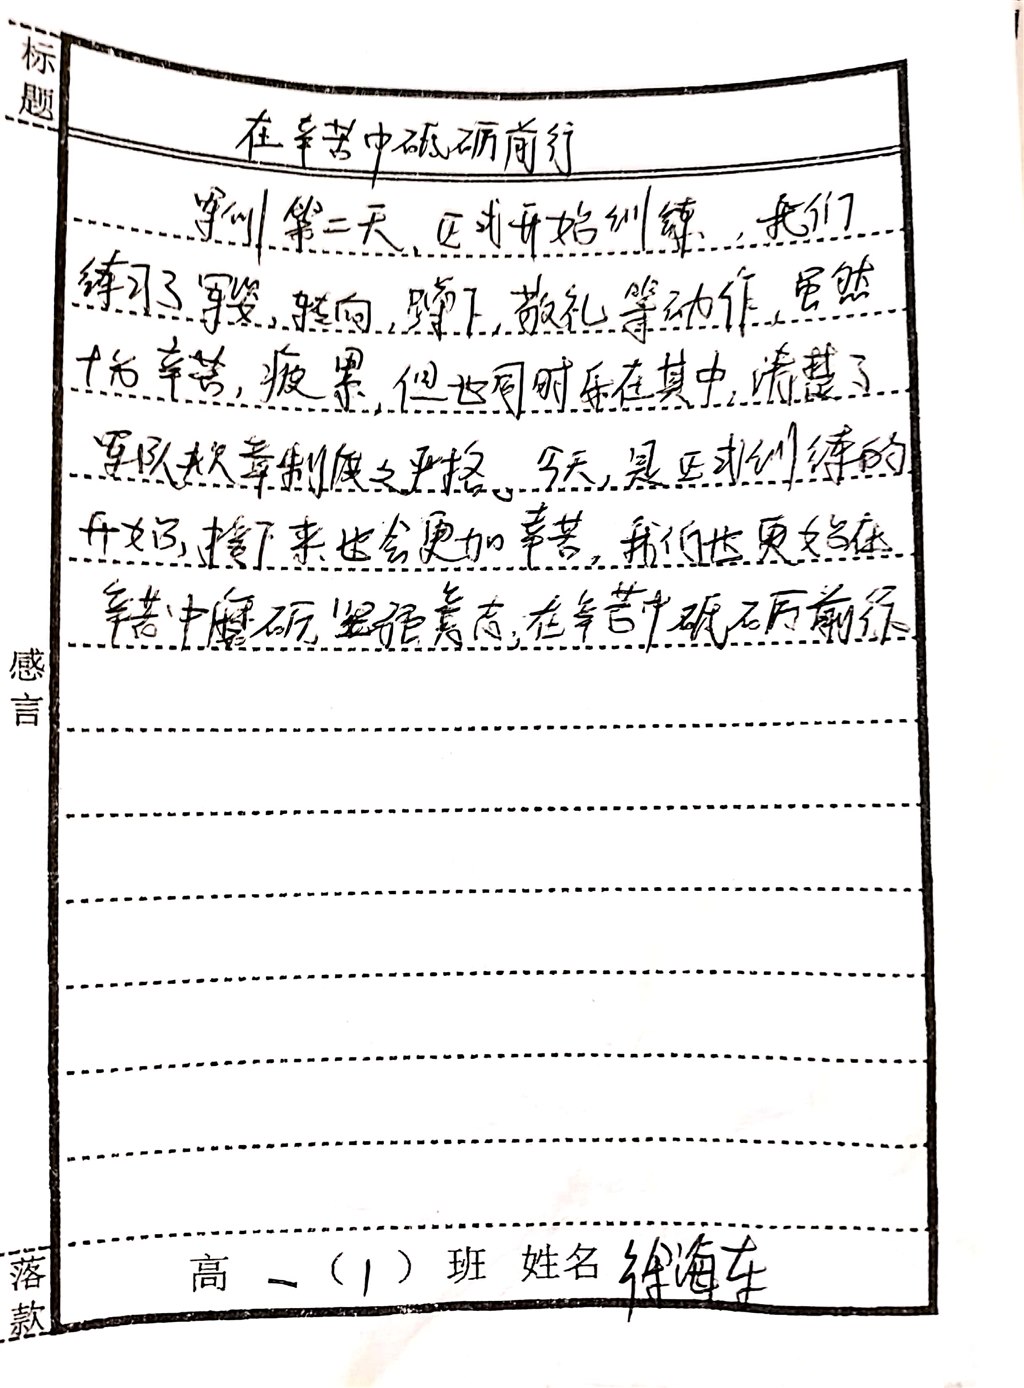 标题
在辛苦中砥砺前行
军训第二天,正式开始训练,我们
练习了军姿,转向,蹲下,敬礼等动作,虽然
十分辛苦,疲累,但也同时乐在其中,清楚了
军队规章制度之严格。今天,是正式训练的
开始,接下来也会更加辛苦,我们也更始在
辛苦中磨砺坚强意志,在辛苦中砥砺前行
感言
落款
高一(1)班 姓名 徐海东